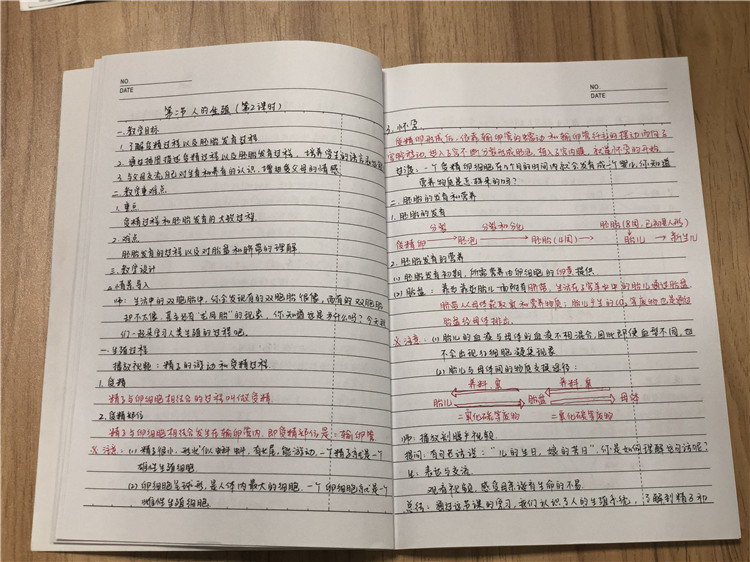 NO.
DATE
第二节 人的生殖 (第2课时)
一. 教学目标
1. 了解受精过程以及胚胎发育过程
2. 通过描述受精过程以及胚胎发育过程, 培养学生的语言表达能
3. 与父母交流自己对生育和养育的认识, 增进爱父母的情感
二. 教学重难点
1. 重点
受精过程和胚胎发育的大致过程
2. 难点
胚胎发育的过程以及对胎盘和脐带的理解
三. 教学设计
情景导入
师: 生活中的双胞胎中, 你会发现有的双胞胎很像, 而有的双胞胎
却不太像, 甚至还有"龙凤胎"的现象, 你知道这是为什么吗? 今天我
们一起来学习人类生殖的过程吧。
一. 生殖过程
播放视频: 精子的游动和受精过程
1. 受精
精子与卵细胞相结合的过程叫做受精
2. 受精部位
精子与卵细胞相结合发生在输卵管内, 即受精部位是: 输卵管
※ 注意: (1) 精子很小, 形状似蝌蚪, 有长尾, 能游动, 一个精子就是一个
雄性生殖细胞
(2) 卵细胞呈球形, 是人体内最大的细胞, 一个卵细胞就是一个
雌性生殖细胞
NO.
DATE
3. 怀孕
受精卵形成后, 依靠输卵管的蠕动和输卵管纤毛的摆动
移动, 进入子宫不断分裂形成胚泡, 植入子宫内膜, 就是怀孕的开始
过渡: 一个受精卵细胞在9个月的时间内就会发育成一个婴儿, 你知道
营养物质是怎样来的吗?
二. 胚胎的发育和营养
1. 胚胎的发育
分裂 分裂和分化 胚胎 (8周, 已初具人形)
受精卵 → 胚泡 → 胚胎 (4周) → 胎儿 → 新生儿
2. 胚胎发育的营养
(1) 胚胎发育初期, 所需营养由卵细胞的卵黄提供
(2) 胎盘: 靠近胎儿一面附有脐带, 生活在子宫羊水中的胎儿通过胎盘
脐带从母体获取氧和营养物质; 胎儿产生的CO₂等废物也是通过
胎盘经母体排出。
※ 注意: (1) 胎儿的血液与母体的血液不相混合, 因此即使血型不同, 也
不会出现红细胞凝集现象
(2) 胎儿与母体间的物质交换途径:
养料, 氧 养料, 氧
胎儿 胎盘 母体
二氧化碳等废物 二氧化碳等废物
师: 播放剖腹产视频
提问: 有句老话说: "儿的生日, 娘的苦日", 你是如何理解这句话呢?
生: 表达与交流
观看视频, 感受母亲孕育生命的不易
总结: 通过这节课的学习, 我们认识了人的生殖系统, 了解到精子和